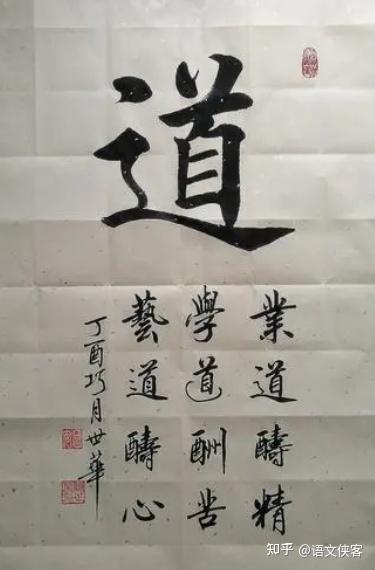 道
業道醻精
學道酬苦
藝道醻心
丁酉巧月世華
知乎 @语文侠客